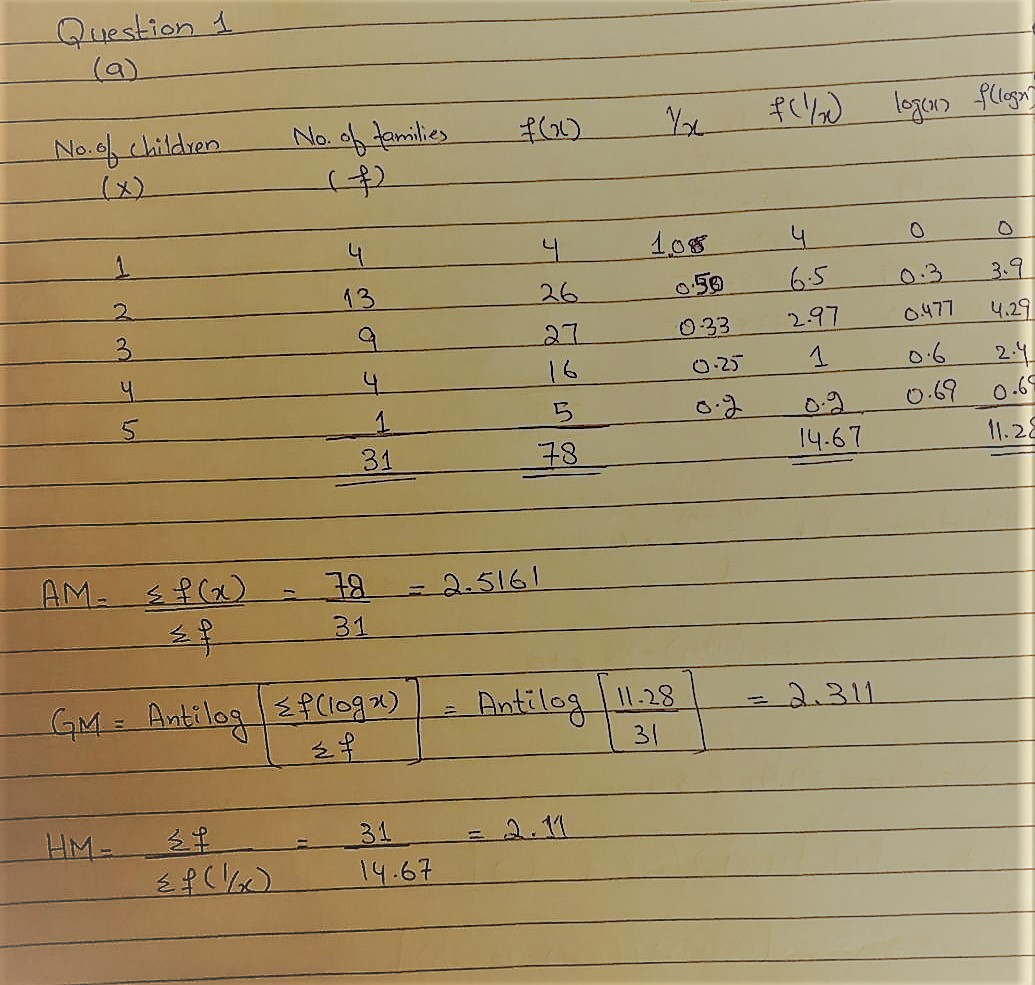 Question 1
(a)
No. of children (x) No. of families (f) f(x) 1/x f(1/x) log(x) f(logx)
1 4 4 1.00 4 0 0
2 13 26 0.50 6.5 0.3 3.9
3 9 27 0.33 2.97 0.477 4.29
4 4 16 0.25 1 0.6 2.4
5 1 5 0.2 0.2 0.69 0.69
31 78 14.67 11.28
AM = Σf(x)/Σf = 78/31 = 2.5161
GM = Antilog [Σf(logx)/Σf] = Antilog [11.28/31] = 2.311
HM = Σf/Σf(1/x) = 31/14.67 = 2.11